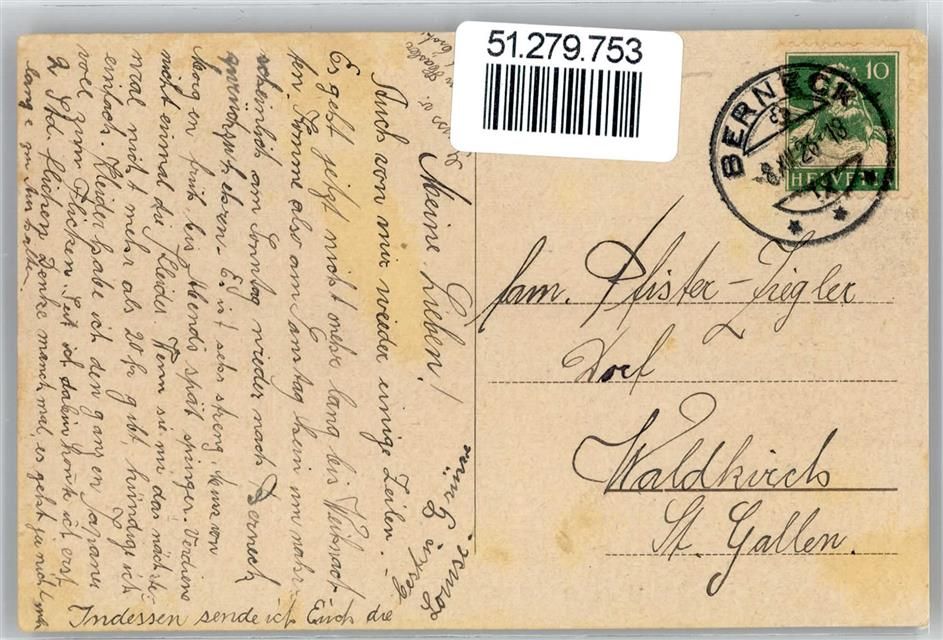 51.279.753
HELVETIA 10
BERNECK
8.XII.26-18
HELVETIA
Fam. Pfister-Ziegler
Dorf
Waldkirch
St. Gallen.
Meine Lieben!
Auch von mir wieder einige Zeilen.
Es geht jetzt nicht mehr lang bis Weihnach
ten. Komme also am Samstag heim um nahr
scheinlich am Sonntag wieder nach Berneck
zurückzukehren. Es ist sehr streng, muss von
Morgen früh bis Abends spät springen. Verdiene
nicht einmal die Kleider. Wenn sie mir das nächste
mal nicht mehr als 20 fr gibt, kündige ich
einfach. Kleider habe ich den ganzen
voll zum Flicken. Seit ich daheim konnte ich erst
2 Std. flicken. Denke manchmal, es geht ja nicht mehr
lange zum Aushalten.
Indessen sende ich Euch die